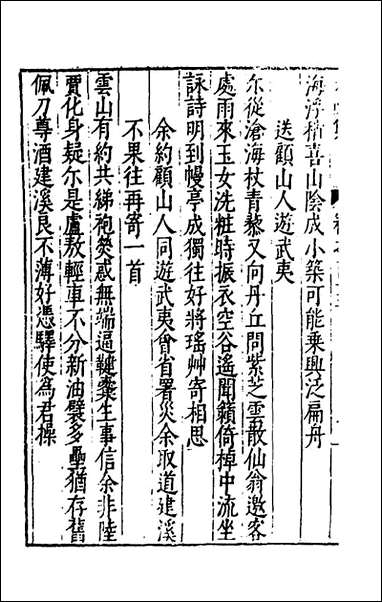 海浮槎喜山陰成小築可能乗興泛扁舟
送顧山人遊武夷
尓從滄海杖青藜又向丹丘問紫芝雲散仙翁邀客
處雨來玉女洗粧時振衣空谷遙聞籟倚棹中流坐
詠詩明到幔亭成獨往好將瑤艸寄相思
余約顧山人同遊武夷會省署災余取道建溪
不果往再寄一首
雲山有約共綈袍奕惑無端逼鞬櫜生事信余非陸
賈化身疑尓是盧敖輕車不分新油襞多壘猶存舊
佩刀尊酒建溪良不薄好憑驛使為君操